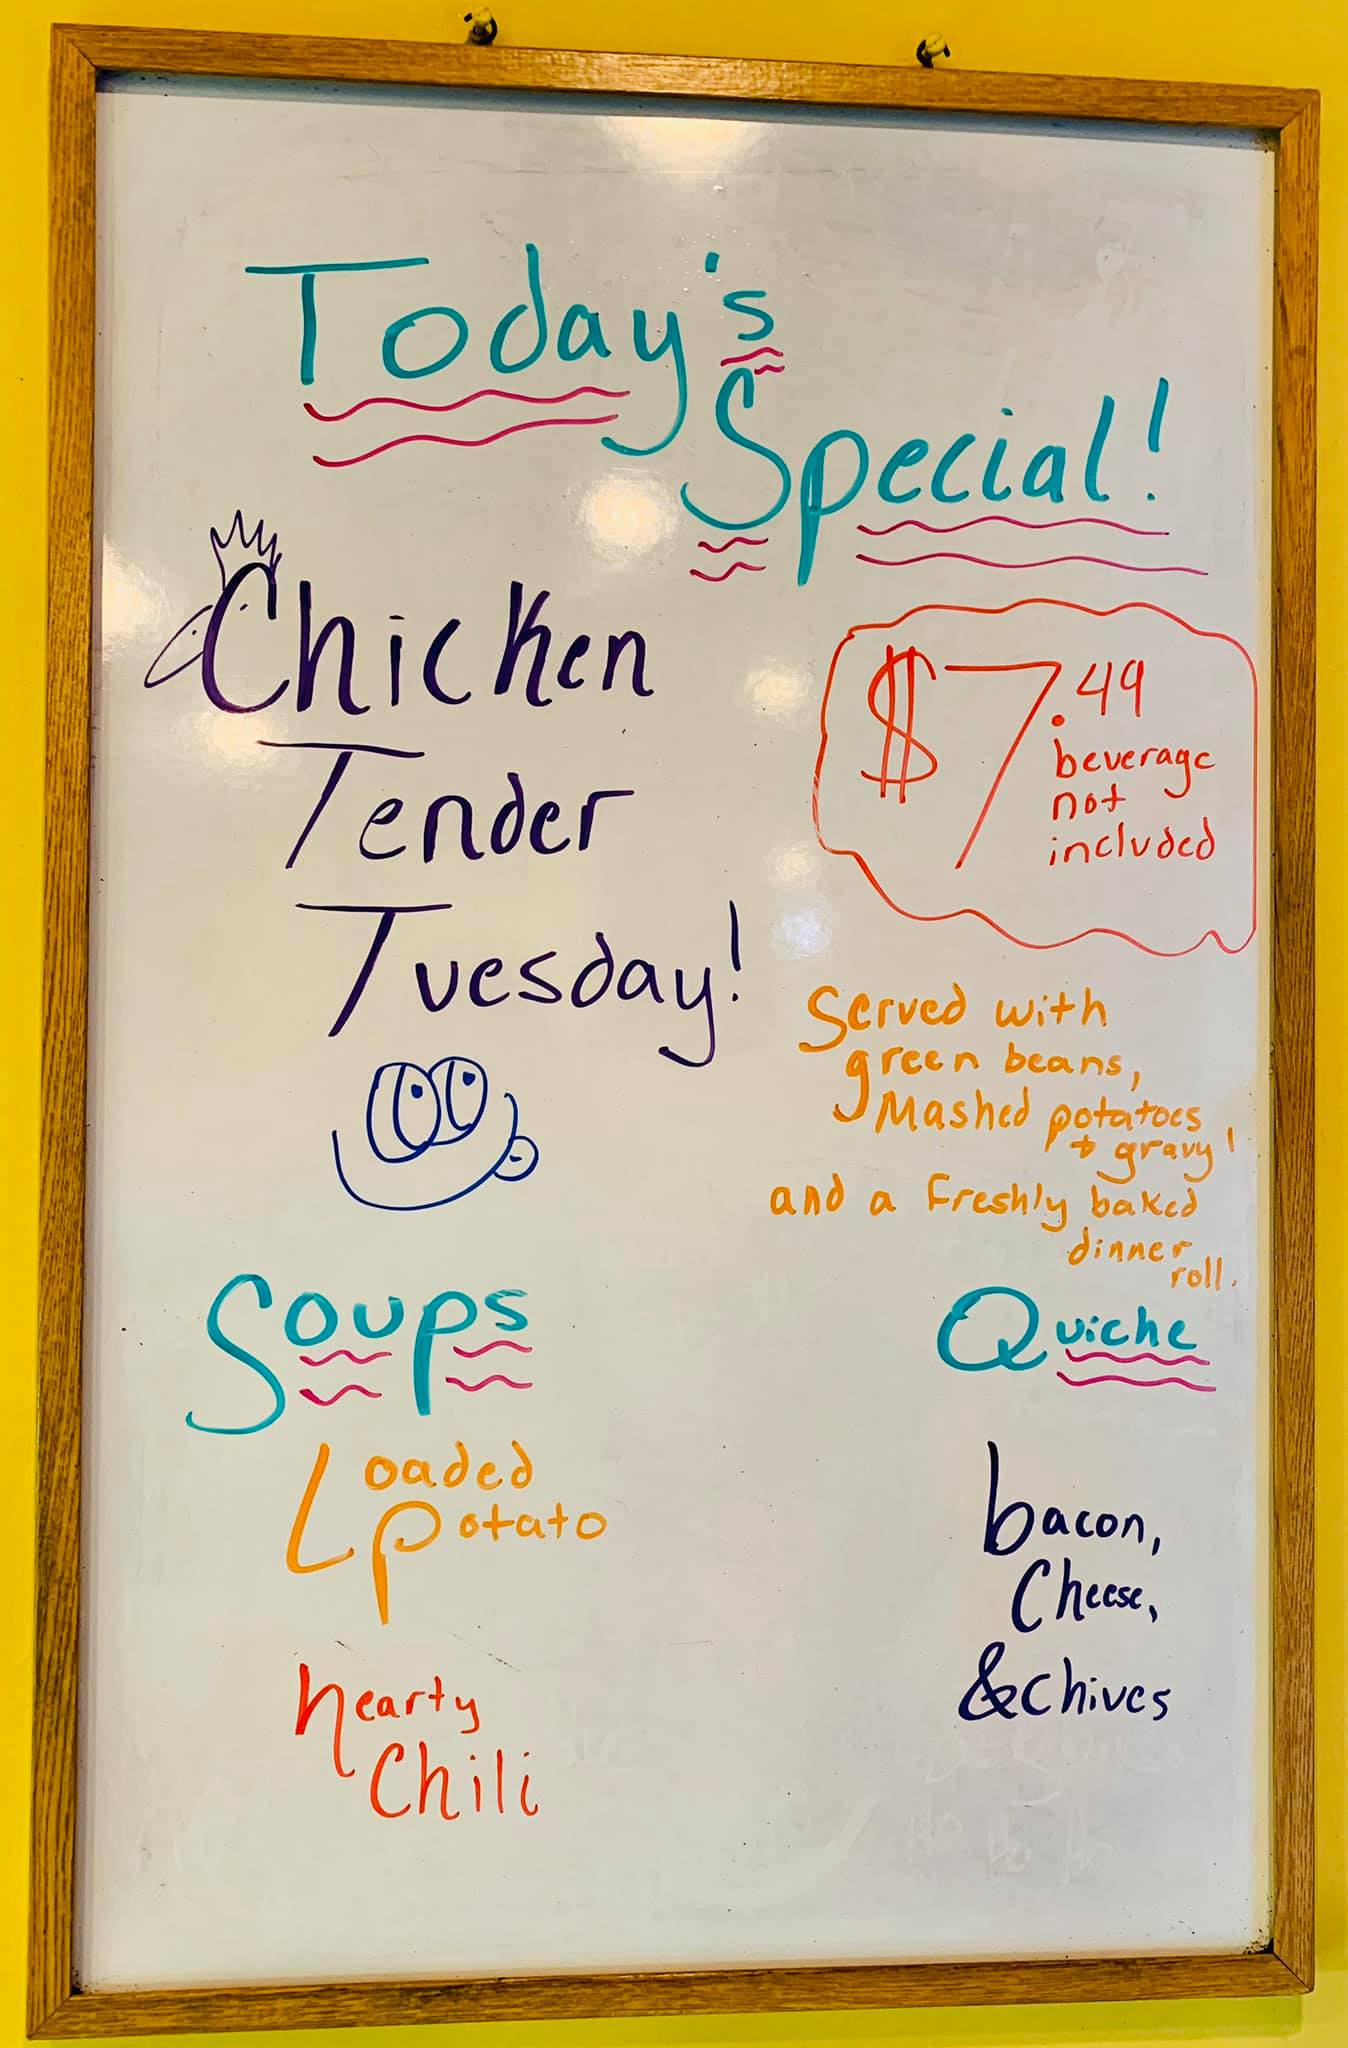 Today's
Special!
Chicken
Tender
Tuesday!
$7.49
beverage
not
included
Served with
green beans,
Mashed potatoes
+ gravy!
and a freshly baked
dinner
roll.
Soups
Loaded
Potato
hearty
Chili
Quiche
bacon,
Cheese,
& Chives